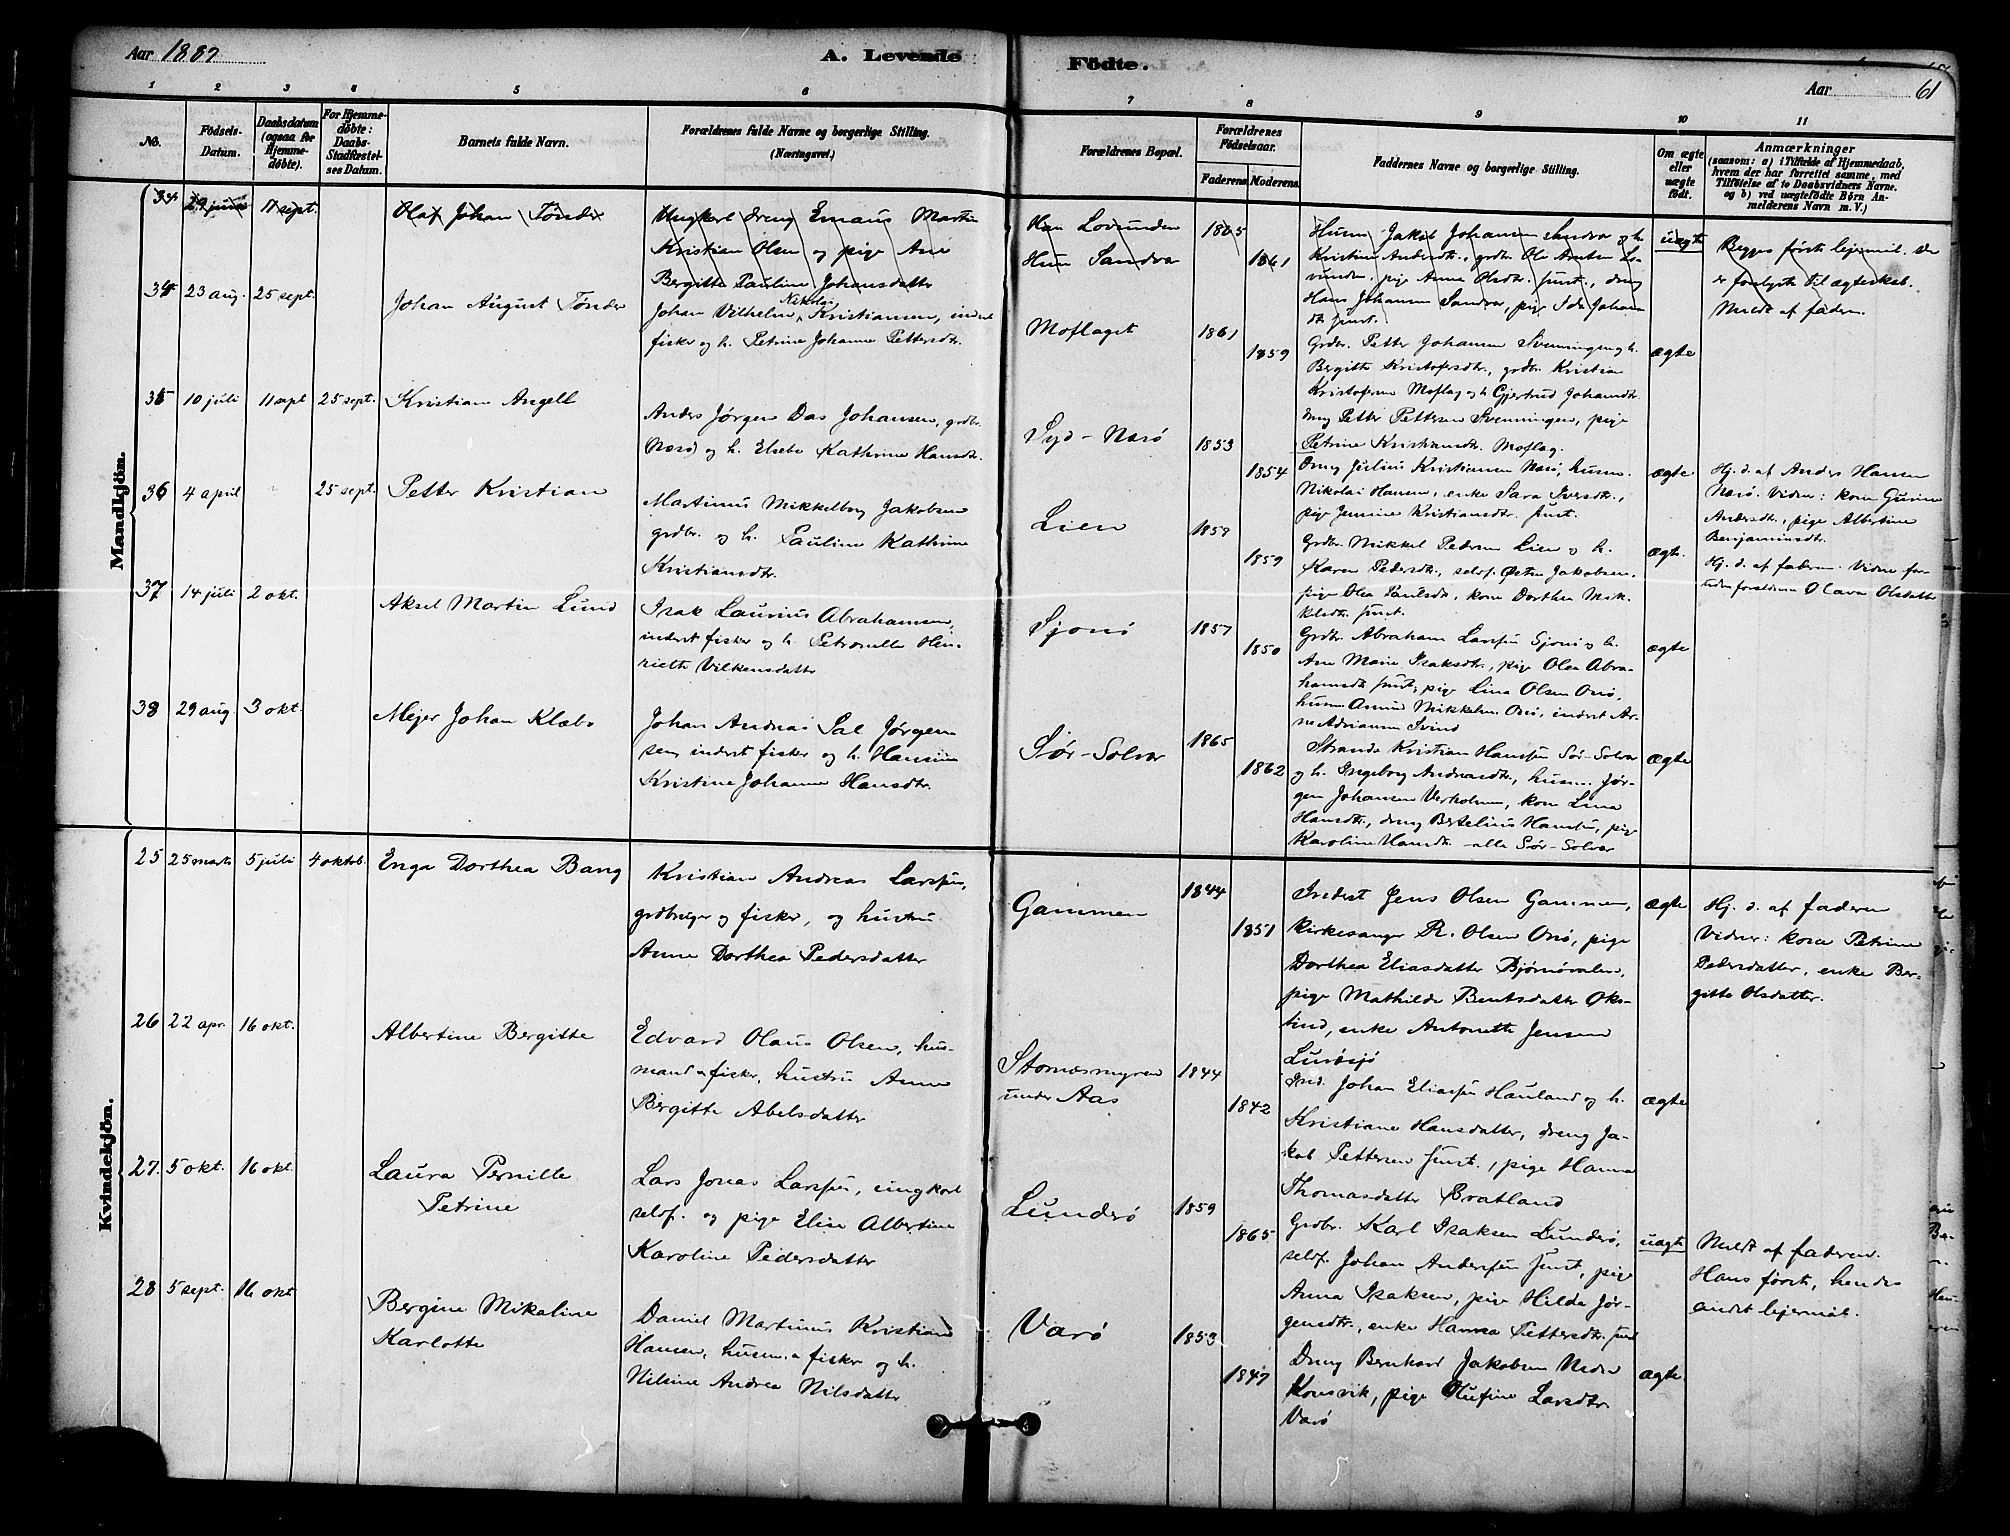 Aar 1887
A. Levende
Födte.
Aar
61
1 2 3 4 5 6 7 8 9 10 11
No.
Födsels-
Datum.
Daabsdatum
(ogsaa for
Hjemme-
døbte).
For Hjemme-
døbte:
Daabs-
Stadfæstel-
ses Datum.
Barnets fulde Navn.
Forældrenes fulde Navne og borgerlige Stilling.
(Næringsvei.)
Forældrenes Bopæl.
Forældrenes
Födselsaar.
Faderens.
Moderens.
Faddernes Navne og borgerlige Stilling.
Om ægte
eller
uægte
födt.
Anmærkninger
(saasom: a) i Tilfælde af Hjemmedaab,
hvem der har forrettet samme, med
Tilföielse af to Daabsvidners Navne.
og b) ved uægtefödte Börn An-
melderens Navn m. V.)
Mandkjön.
34 29 juni 11 sept.
Olaf Johan Tønder
Ungkarl dreng Emaus Martin
Kristian Olsen og pige Ane
Bergitte Pauline Johansdatter
Han Lovunden
Hun Sandvær
1865
1861
Husm. Jakob Johansen Sandvær og h.
Kristine Andersdtr., grdbr. Ole Arntsen Lo-
vunden, pige Anna Olsdtr. smst., dreng
Hans Johansen Sandvær, pige Ida Johans
dtr smst.
uægte
Begges første lejermål. De
er forlyste til ægteskab.
Meldt af faderen.
34 23 aug. 25 sept.
Johan August Tønder
Johan Vilhelm Nikolai Kristiansen, inderst
fisker og h. Petrine Johanne Pettersdtr.
Moflaget
1861
1859
Grdbr. Petter Johansen Svenningen og h.
Bergitte Kristofersdtr., grdbr. Kristian
Kristofersen Moflag og h. Gjertrud Johansdtr.
dreng Petter Pettersen Svenningen, pige
Petrine Kristiansdtr. Moflag.
ægte
35 10 juli 11 sept 25 sept.
Kristian Angell
Anders Jørgen Das Johansen, grdbr.
Nesø og h. Elsebe Kathrine Hansdtr.
Syd-Nesø
1853
1854
Dreng Julius Kristiansen Nesø, husm.
Nikolai Hansen, enke Sara Iversdtr.,
pige Jensine Kristiansdtr. smst.
ægte
Hj. d. af Anders Hansen
Nesø. Vidner: kone Gurine
Andersdtr., pige Albertine
Benjaminsdtr.
36 4 april 25 sept.
Petter Kristian
Martinus Mikkelborg Jakobsen
grdbr. og h. Pauline Kathrine
Kristiansdtr.
Lien
1859
1859
Grdbr. Mikkel Pedersen Lien og h.
Karen Pedersdtr., selvf. Østen Jakobsen,
pige Olea Paulsdtr, kone Dorthea Mik-
kelsdtr. smst.
ægte.
Hj. d. af faderen. Vidner for-
uden forældrene Olava Olsdatter
37 14 juli 2 okt.
Aksel Martin Lund
Isak Laurius Abrahamsen,
inderst fisker og h. Petronelle Hen-
riette Vilkensdatter
Sjonø
1857
1850
Grdbr. Abraham Larssen Sjonø og h.
Ane Marie Isaksdtr., pige Olea Abra-
hamsdtr smst., pige Lina Olsen Onø,
husm. Amund Mikkelsen Onø, inderst Ar-
ne Adriansen Svind
ægte
38 29 aug 3 okt.
Mejer Johan Klæbo
Johan Andreas Sal Jørgen-
sen, inderst fisker og h. Hansine
Kristine Johanne Hansdtr.
Sør-Solvær
1865
1862
Strands. Kristian Hanssen Sør-Solvær
og h. Ingeborg Andreasdtr., husm. Jør-
gen Johansen Varholmen, kone Lina
Hansdtr., dreng Bertelius Hanssen, pige
Karoline Hansdtr - alle Sør-Solvær
ægte
Kvindekjön.
25 25 marts 5 juli 4 oktob.
Enga Dorthea Bang
Kristian Andreas Larssen,
grdbruger og fisker, og hustru
Anne Dorthea Pedersdatter
Gammen
1844
1851
Inderst Jens Olsen Gammen,
kirkesanger R. Olsen Onø, pige
Dorthea Eliasdatter Bjørnøvalen,
pige Mathilde Bentsdatter Oks-
tind, enke Antonette Jensen
Lurøsjø
ægte
Hj. d. af faderen
Vidner: kone Petrine
Pedersdatter, enke Ber-
gitte Olsdatter.
26 22 apr. 16 okt.
Albertine Bergitte
Edvard Olaus Olsen, hus-
mand & fisker, hustru Anne
Bergitte Abelsdatter
Stornesmyren
under Aas
1844
1842
Ind. Johan Eliassen Hauland og h.
Kristiane Hansdatter, dreng Ja-
kob Pettersen smst., pige Hanna
Thomasdatter Bratland
ægte
27. 5 okt. 16 okt.
Laura Pernille
Petrine
Lars Jonas Larssen, ungkarl
selvf. og pige Elise Albertine
Karoline Pedersdatter
Lunderø
1859
1865
Grdbr. Karl Isaksen Lunderø,
selvf. Johan Anderssen smst, pige
Anna Isaksen, pige Hilda Jør-
gensdtr., enke Hanna Pettersdtr. smst
uægte
Meldt af faderen.
Hans først, hendes
andet lejermål.
28 5 sept. 16 okt
Bergine Mikaline
Karlotte
Daniel Martinus Kristian
Hansen, husm. & fisker og h.
Nilsine Andrea Nilsdatter
Varø
1853
1847
Dreng Bernhard Jakobsen Nedre
Konsvik, pige Olufine Larsdtr.
Varø
ægte